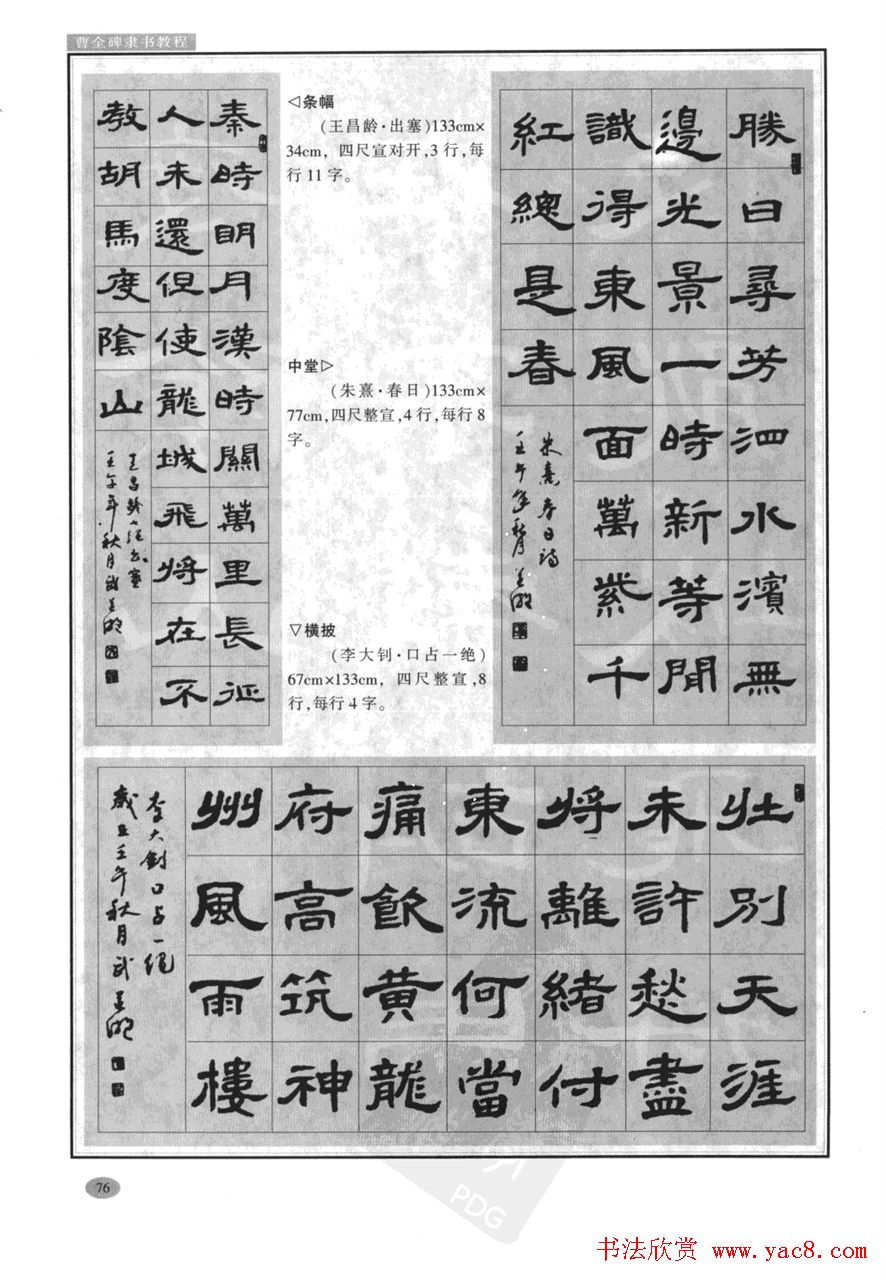 曹全碑隶书教程
秦時明月漢時關萬里長征
人未還但使龍城飛将在不
教胡馬度陰山
王昌齡
壬午年秋月武
◁条幅
(王昌龄·出塞)133cm×
34cm，四尺宣对开,3行,每
行11字。
中堂▷
(朱熹·春日)133cm×
77cm,四尺整宣,4行,每行8
字。
▽横披
(李大钊·口占一绝)
67cm×133cm，四尺整宣,8
行,每行4字。
勝日尋芳泗水濱無
邊光景一時新等閒
識得東風面萬紫千
紅總是春
朱熹春日詩
壬午年秋月
壮別天涯
未許愁盡
将離緒付
東流何當
痛飲黄龍
府高筑神
州風雨樓
李大釗口占一絕
歲在壬午秋月武
76
PDG
书法欣赏 www.yac8.com